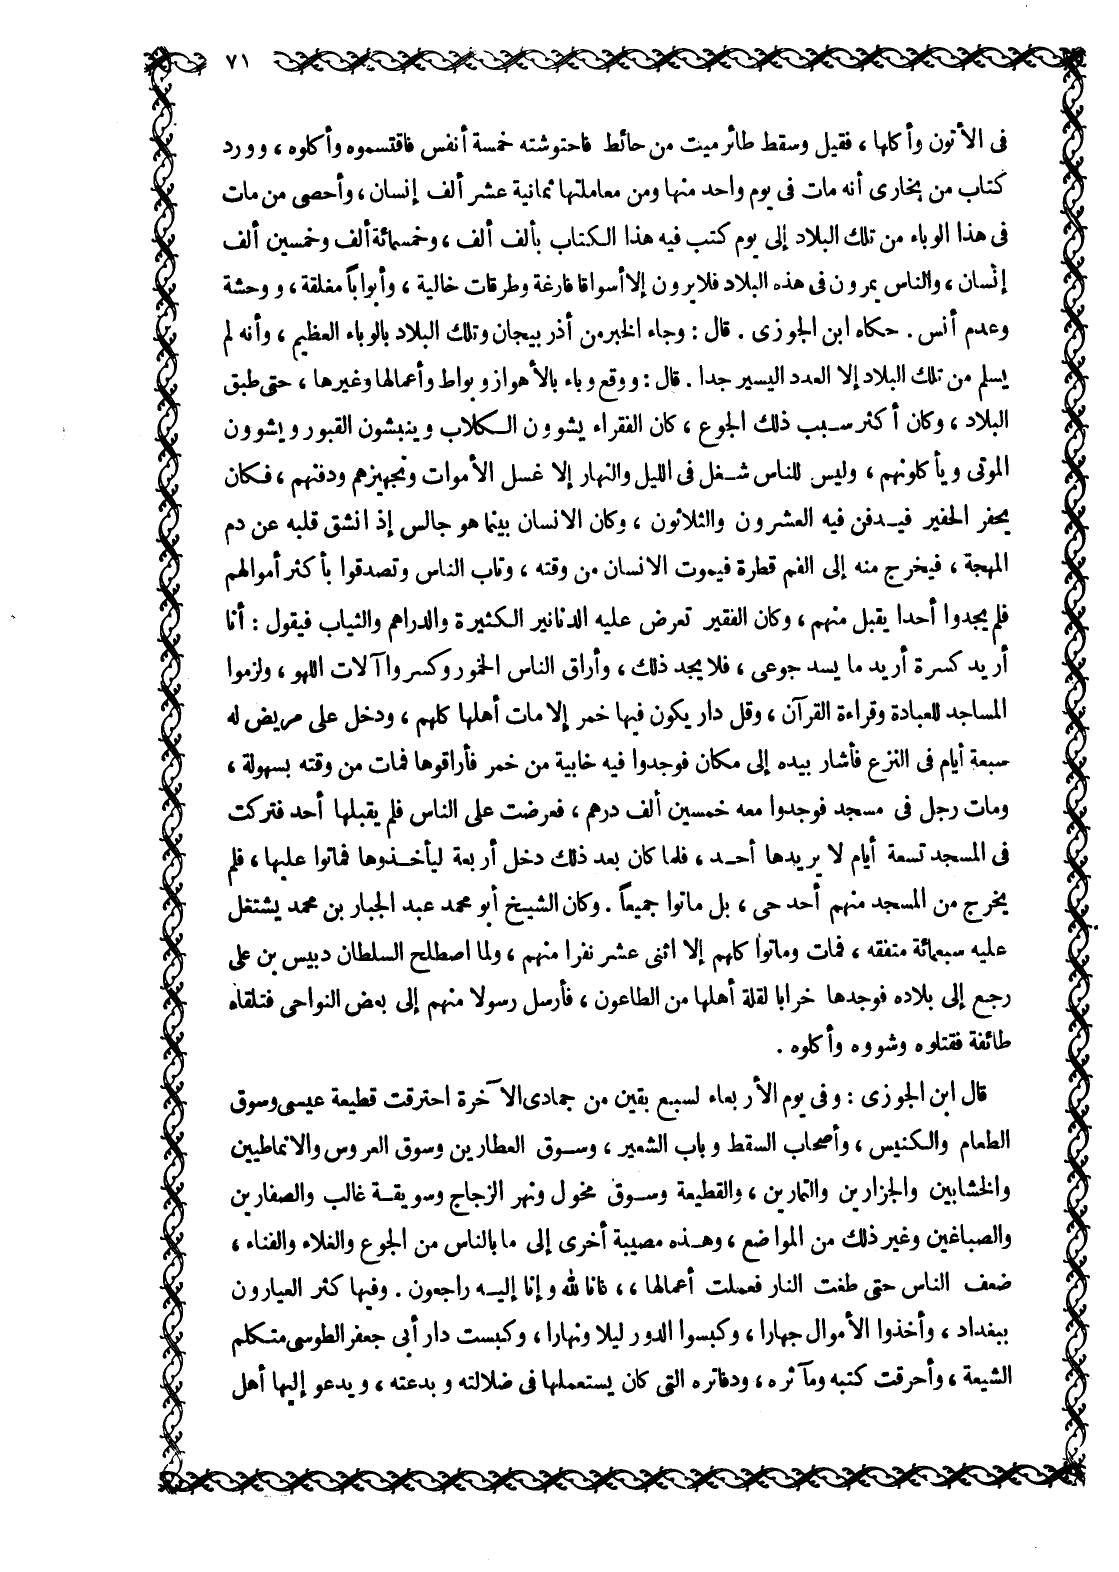 ٧١
فى الأتون وأكلها ، فقيل وسقط طائر ميت من حائط فاحتوشته خمسة أنفس فاقتسموه وأكلوه ، وورد
كتاب من بخارى أنه مات فى يوم واحد منها ومن معاملتها ثمانية عشر ألف إنسان ، وأحصى من مات
فى هذا الوباء من تلك البلاد إلى يوم كتب فيه هذا الكتاب بألف ألف ، وخمسمائة ألف وخمسين ألف
إنسان ، والناس يمرون فى هذه البلاد فلا يرون إلا أسواقا فارغة وطرقات خالية ، وأبواباً مغلقة ، ووحشة
وعدم أنس . حكاه ابن الجوزى . قال : وجاء الخبر من أذر بيجان وتلك البلاد بالوباء العظيم ، وأنه لم
يسلم من تلك البلاد إلا العدد اليسير جدا . قال : ووقع وباء بالأهواز وبواط وأعمالها وغيرها ، حتى طبق
البلاد ، وكان أكثر سبب ذلك الجوع ، كان الفقراء يشوون الكلاب وينبشون القبور ويشوون
الموتى ويأكلونهم ، وليس للناس شغل فى الليل والنهار إلا غسل الأموات وتجهيزهم ودفنهم ، فكان
يحفر الحفير فيدفن فيه العشرون والثلاثون ، وكان الانسان بينما هو جالس إذ انشق قلبه عن دم
المهجة ، فيخرج منه إلى الفم قطرة فيموت الانسان من وقته ، وتاب الناس وتصدقوا بأكثر أموالهم
فلم يجدوا أحدا يقبل منهم ، وكان الفقير تعرض عليه الدنانير الكثيرة والدراهم والثياب فيقول : أنا
أريد كسرة أريد ما يسد جوعى ، فلا يجد ذلك ، وأراق الناس الخمور وكسروا آلات اللهو ، ولزموا
المساجد للعبادة وقراءة القرآن ، وقل دار يكون فيها خمر إلا مات أهلها كلهم ، ودخل على مريض له
سبعة أيام فى النزع فأشار بيده إلى مكان فوجدوا فيه خابية من خمر فأراقوها فمات من وقته بسهولة ،
ومات رجل فى مسجد فوجدوا معه خمسين ألف درهم ، فعرضت على الناس فلم يقبلها أحد فتركت
فى المسجد تسعة أيام لا يريدها أحد ، فلما كان بعد ذلك دخل أربعة ليأخذوها فماتوا عليها ، فلم
يخرج من المسجد منهم أحد حى ، بل ماتوا جميعاً . وكان الشيخ أبو محمد عبد الجبار بن محمد يشتغل
عليه سبعمائة متفقه ، فمات وماتوا كلهم إلا اثنى عشر نفرا منهم ، ولما اصطلح السلطان دبيس بن على
رجع إلى بلاده فوجدها خرابا لقلة أهلها من الطاعون ، فأرسل رسولا منهم إلى بعض النواحى فتلقاه
طائفة فقتلوه وشووه وأكلوه .
قال ابن الجوزى : وفى يوم الأربعاء لسبع بقين من جمادى الآخرة احترقت قطيعة عيسى وسوق
الطعام والكنيس ، وأصحاب السقط وباب الشعير ، وسوق العطارين وسوق العروس والانماطيين
والخشابين والجزارين والتمارين ، والقطيعة وسوق مخول ونهر الزجاج وسويقة غالب والصفارين
والصباغين وغير ذلك من المواضع ، وهذه مصيبة أخرى إلى ما بالناس من الجوع والغلاء والفناء ،
ضعف الناس حتى طغت النار فعملت أعمالها ،، فانا لله وإنا إليه راجعون . وفيها كثر العيارون
ببغداد ، وأخذوا الأموال جهارا ، وكبسوا الدور ليلا ونهارا ، وكبست دار أبى جعفر الطوسى متكلم
الشيعة ، وأحرقت كتبه ومآثره ، ودفاتره التى كان يستعملها فى ضلالته وبدعته ، ويدعو إليها أهل